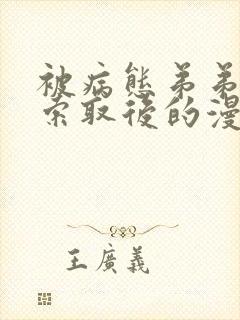 被病態弟弟
索取後的漫
王廣義